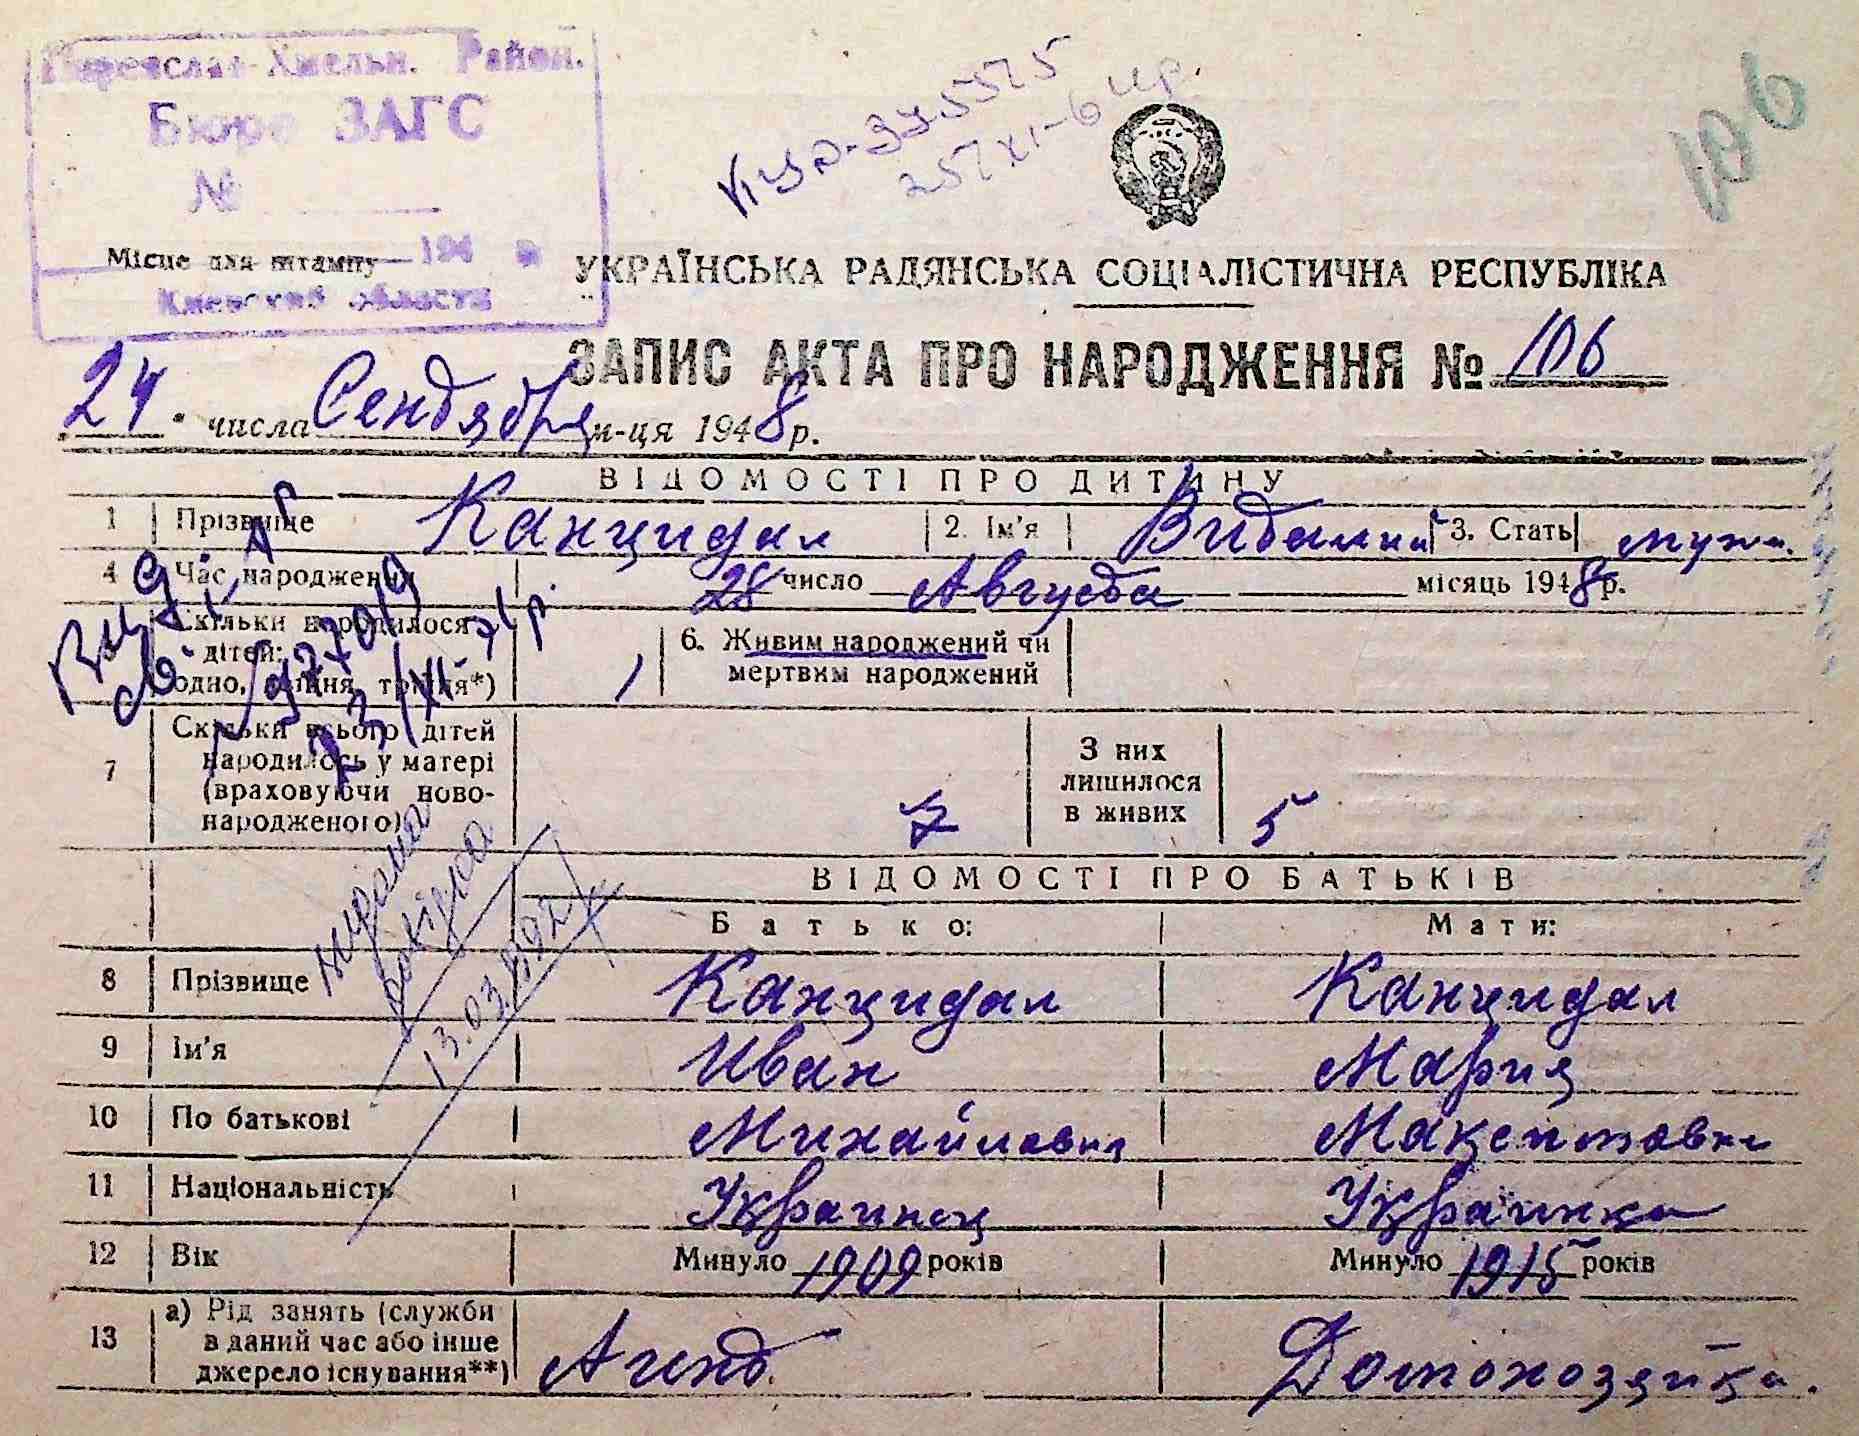 Переяслав-Хмельн. Район.
Бюро ЗАГС
№
194
Киевской области
Місце для штампу
106
УКРАЇНСЬКА РАДЯНСЬКА СОЦІАЛІСТИЧНА РЕСПУБЛІКА
ЗАПИС АКТА ПРО НАРОДЖЕННЯ № 106
24 числа Сентября м-ця 1948 р.
ВІДОМОСТІ ПРО ДИТИНУ
1 Прізвище Канцидал 2. Ім'я Виталий 3. Стать мужч.
4 Час народження 28 число Августа місяць 1948 р.
Скільки народилося дітей: одно, двійня, трійня*) 1 6. Живим народжений чи мертвим народжений
7 Скільки всього дітей народилось у матері (враховуючи новонародженого) 7 З них лишилося в живих 5
видана
довідка
13.03.1992
ВІДОМОСТІ ПРО БАТЬКІВ
Батько: Мати:
8 Прізвище Канцидал Канцидал
9 Ім'я Иван Мария
10 По батькові Михайлович Максимовна
11 Національність Украинец Украинка
12 Вік Минуло 1909 років Минуло 1915 років
13 а) Рід занять (служби в даний час або інше джерело існування**) Агент. Домохозяйка.